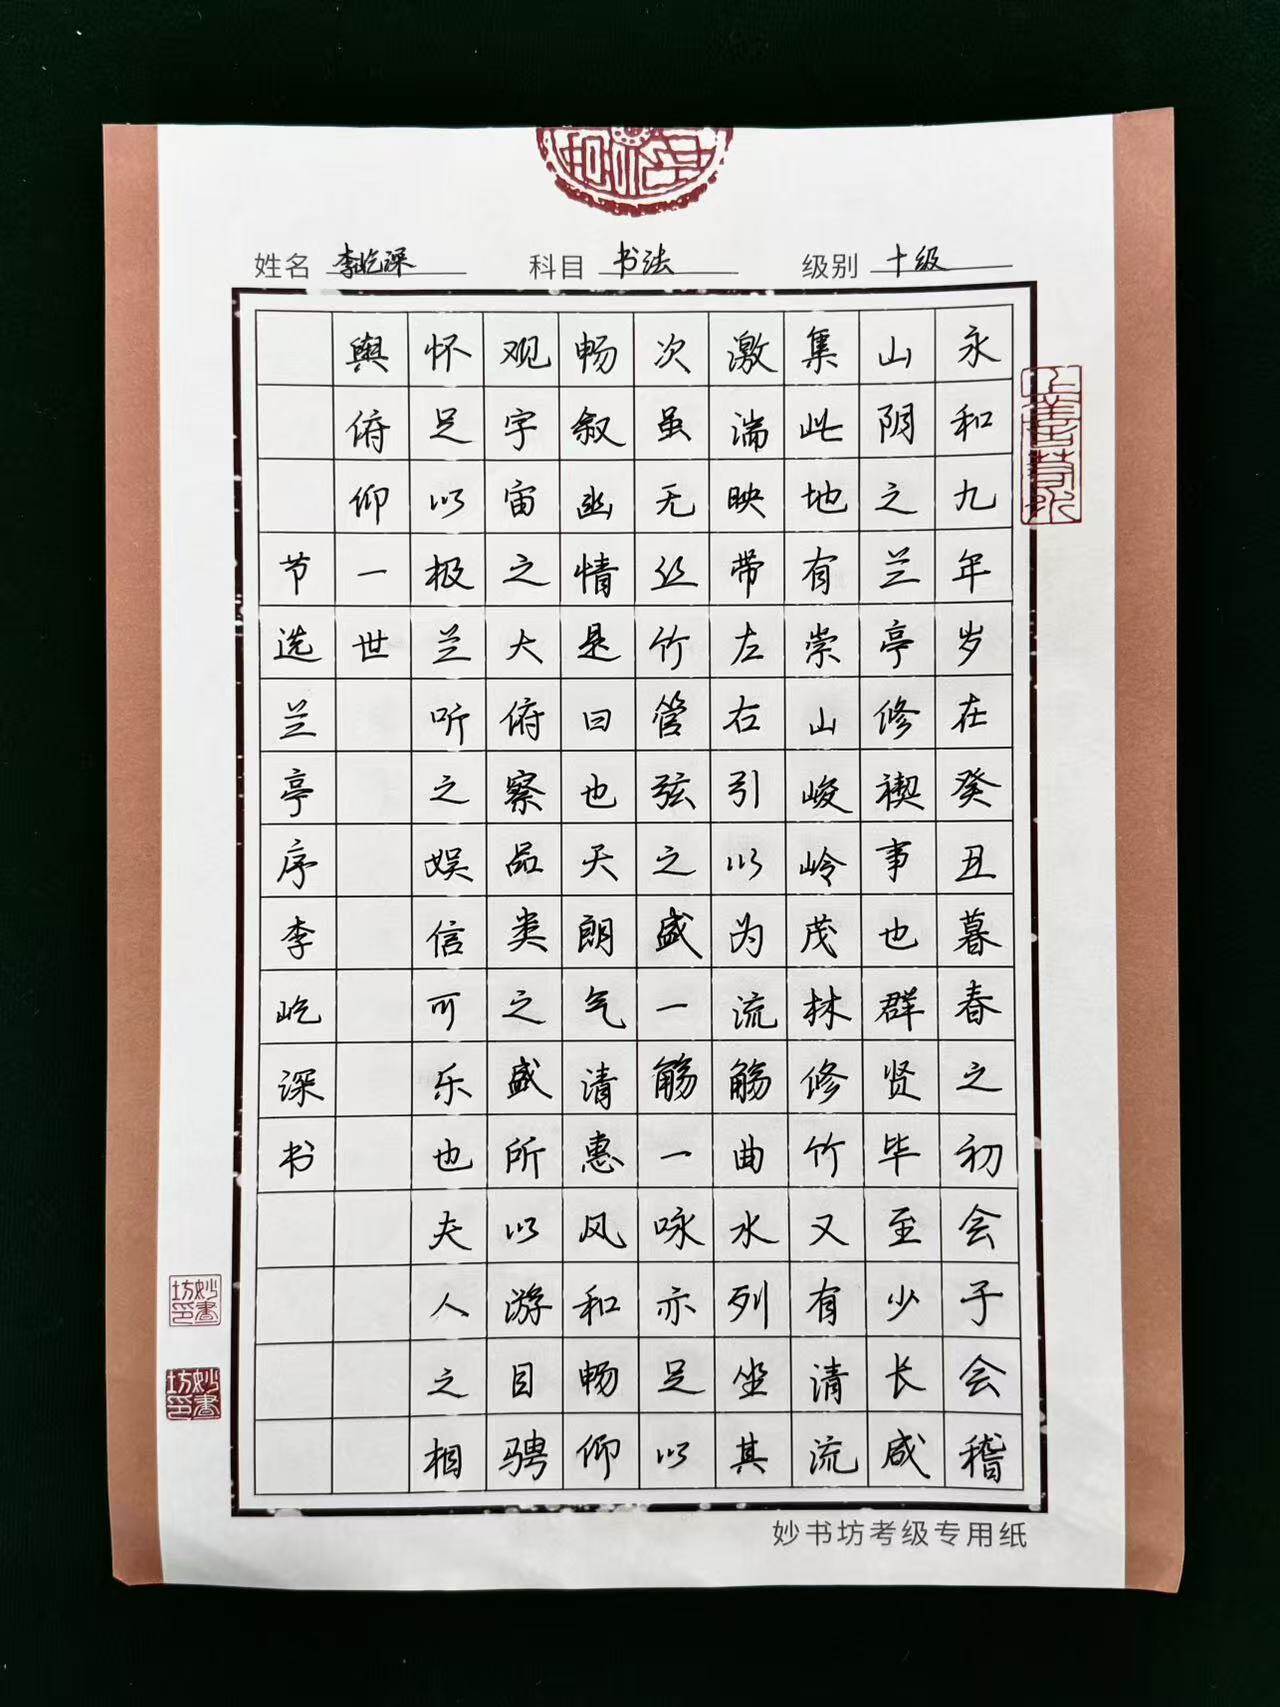 姓名 李屹深 科目 书法 级别 十级
永和九年岁在癸丑暮春之初会于会稽
山阴之兰亭修禊事也群贤毕至少长咸
集此地有崇山峻岭茂林修竹又有清流
激湍映带左右引以为流觞曲水列坐其
次虽无丝竹管弦之盛一觞一咏亦足以
畅叙幽情是曰也天朗气清惠风和畅仰
观宇宙之大俯察品类之盛所以游目骋
怀足以极兰听之娱信可乐也夫人之相
舆俯仰一世
节选兰亭序李屹深书
上善若水
妙書坊印
妙書坊印
妙书坊考级专用纸